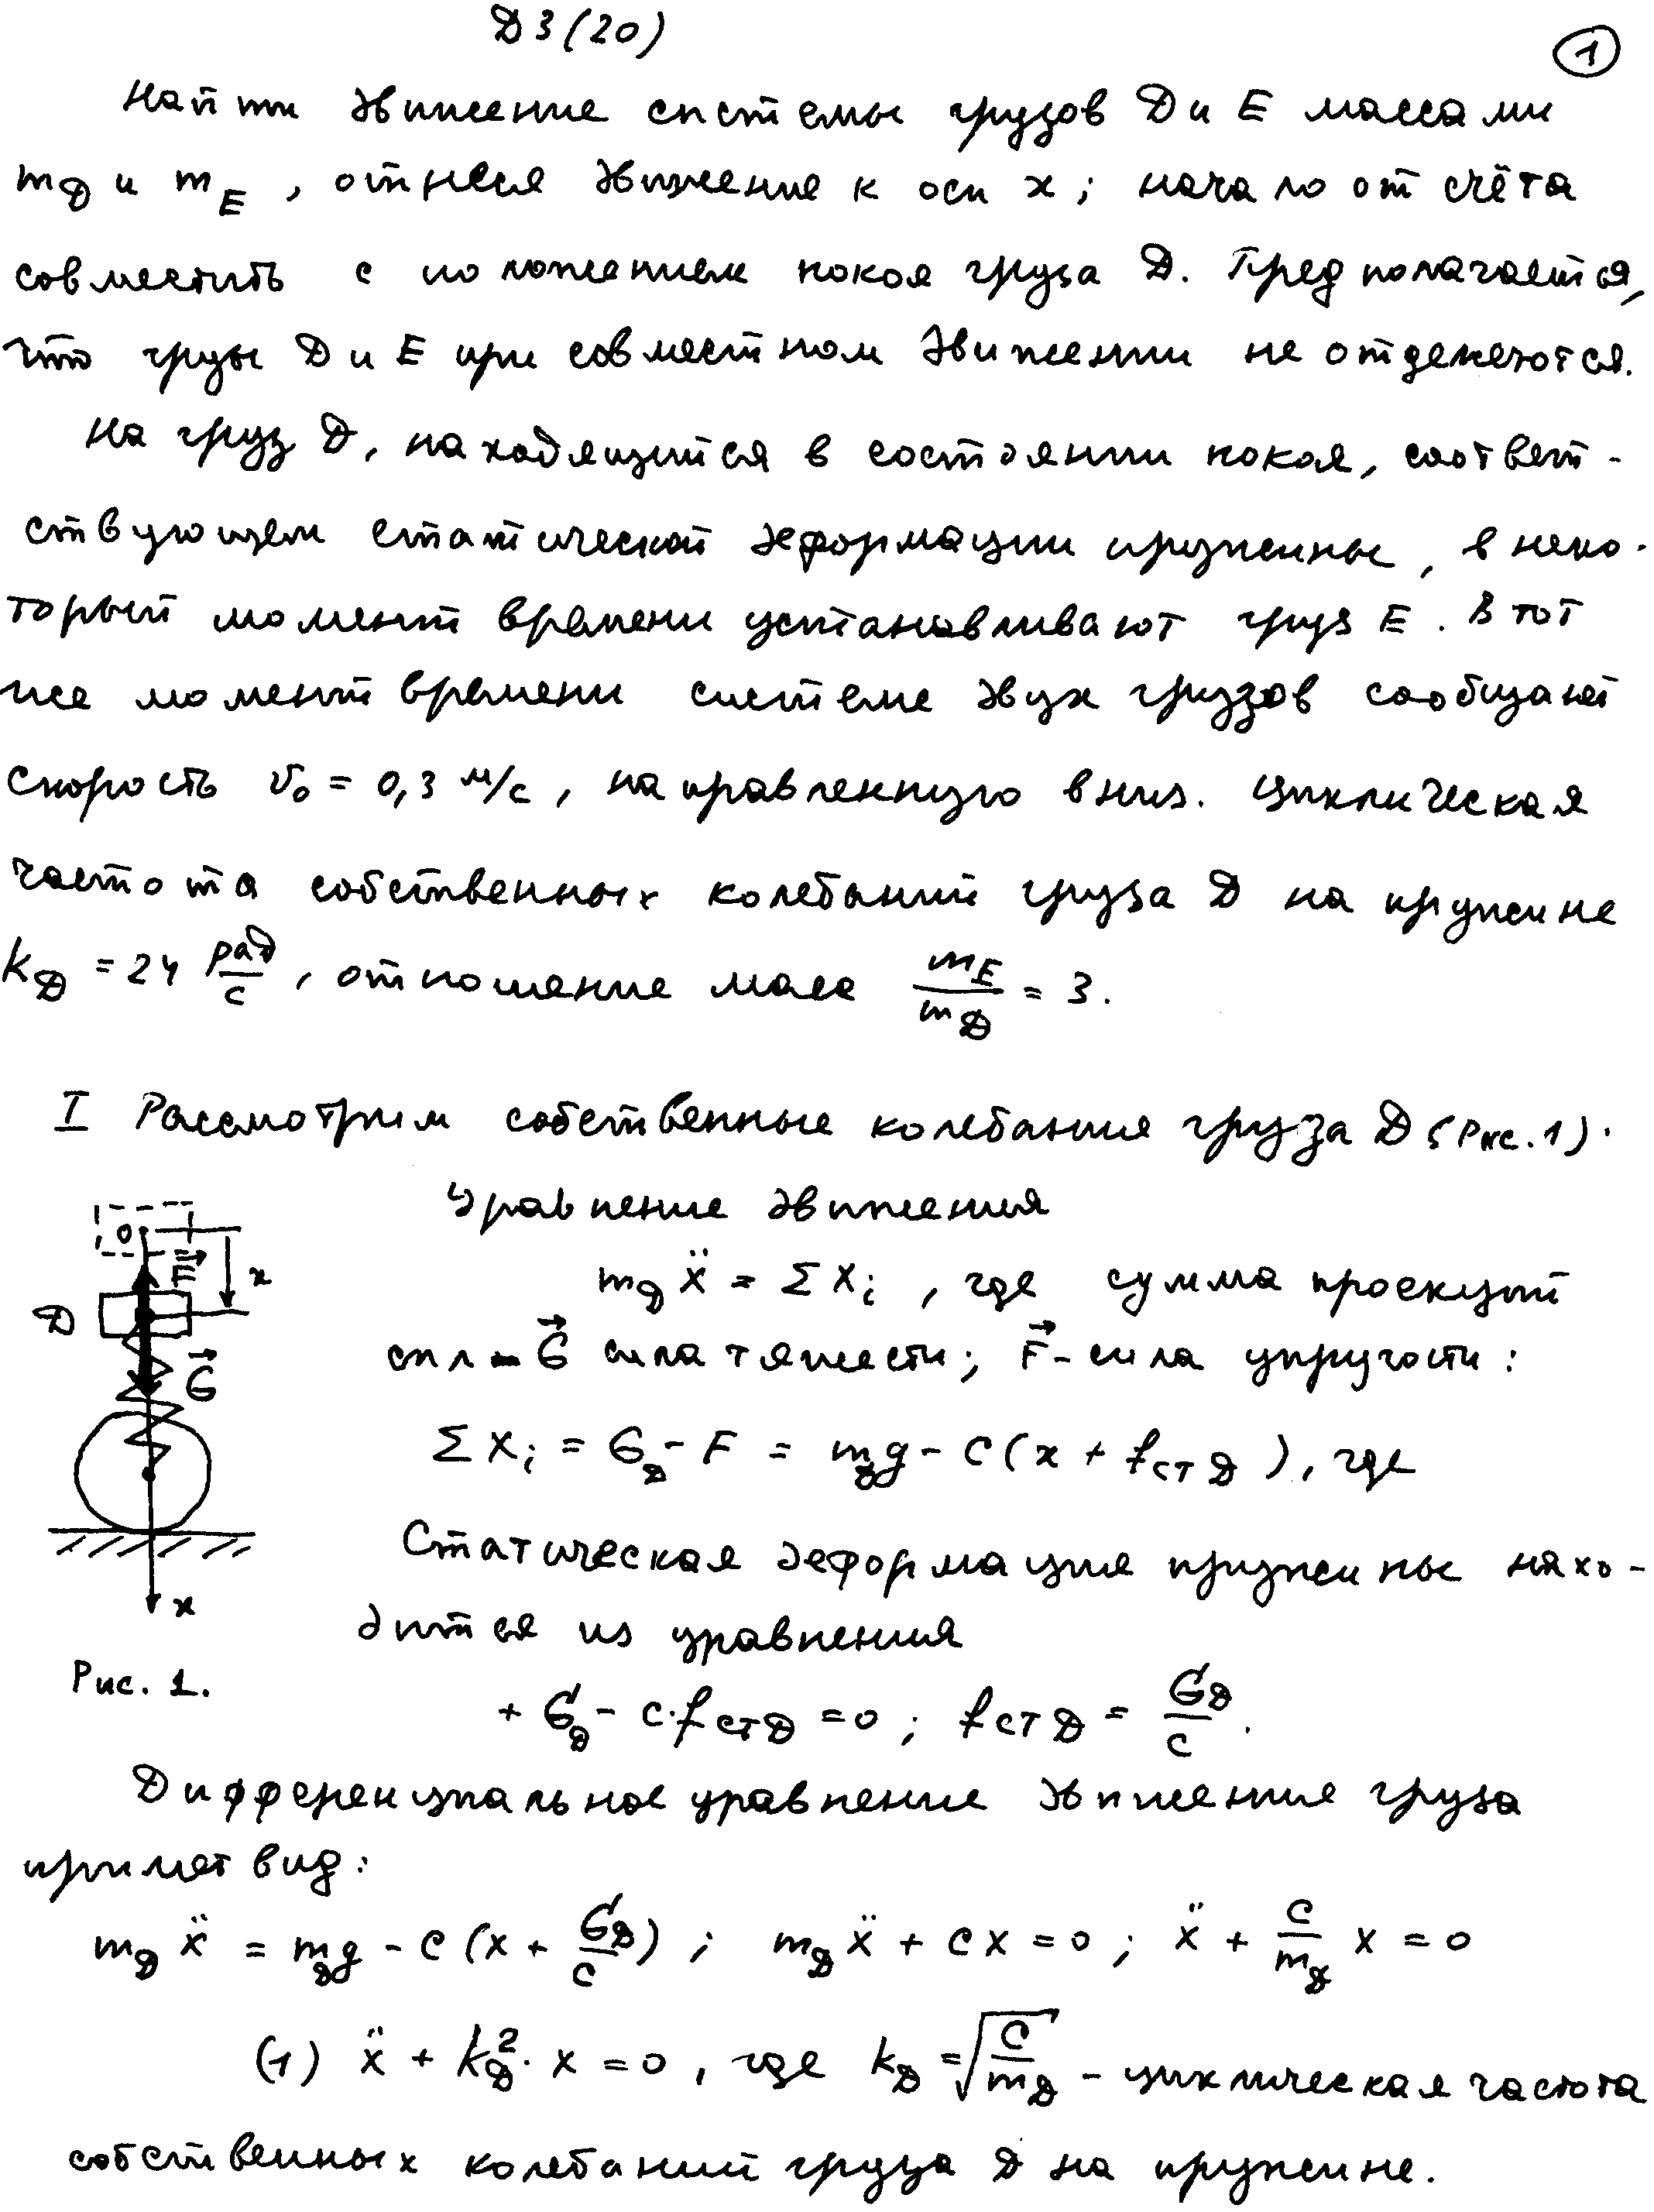 Д3(20)
1
Найти движение системы грузов D и E массами
m_D и m_E, отнеся движение к оси x; начало отсчёта
совместить с положением покоя груза D. Предполагается,
что грузы D и E при совместном движении не отделяются.
На груз D, находящийся в состоянии покоя, соответ-
ствующем статической деформации пружины, в неко-
торый момент времени устанавливают груз E. В тот
же момент времени системе двух грузов сообщают
скорость v₀ = 0,3 м/с, направленную вниз. Циклическая
частота собственных колебаний груза D на пружине
k_D = 24 рад/с, отношение масс m_E/m_D = 3.
I Рассмотрим собственные колебания груза D (Рис. 1).
Уравнение движения
m_D ẍ = Σ X_i, где сумма проекций
сил - G⃗ сила тяжести; F⃗ - сила упругости:
Σ X_i = G_D - F = m_D g - c(x + f_стD), где
Статическая деформация пружины нахо-
дится из уравнения
+ G_D - c·f_стD = 0; f_стD = G_D/c.
O
F⃗
x
D
G⃗
x
Рис. 1.
Дифференциальное уравнение движения груза
примет вид:
m_D ẍ = m_D g - c(x + G_D/c); m_D ẍ + cx = 0; ẍ + c/m_D x = 0
(1) ẍ + k_D²·x = 0, где k_D = √(c/m_D) - циклическая частота
собственных колебаний груза D на пружине.